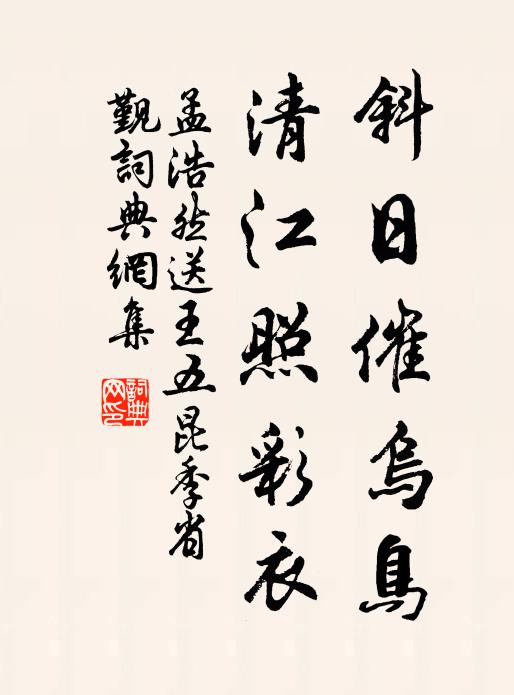 斜日催烏鳥
清江照彩衣
孟浩然送王五昆季省
覲詞典網集
詞典网印